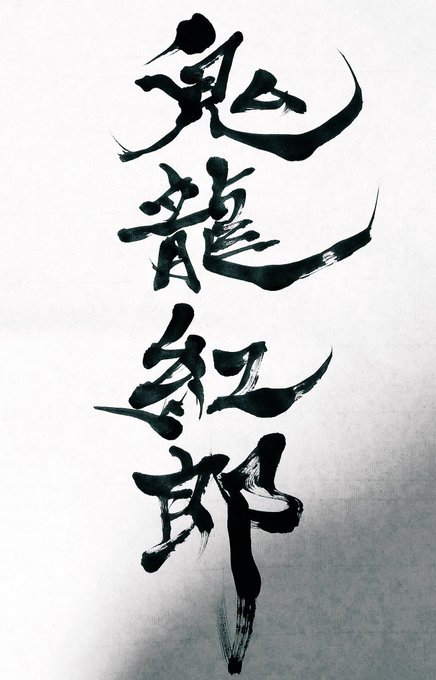 鬼龍紅郎